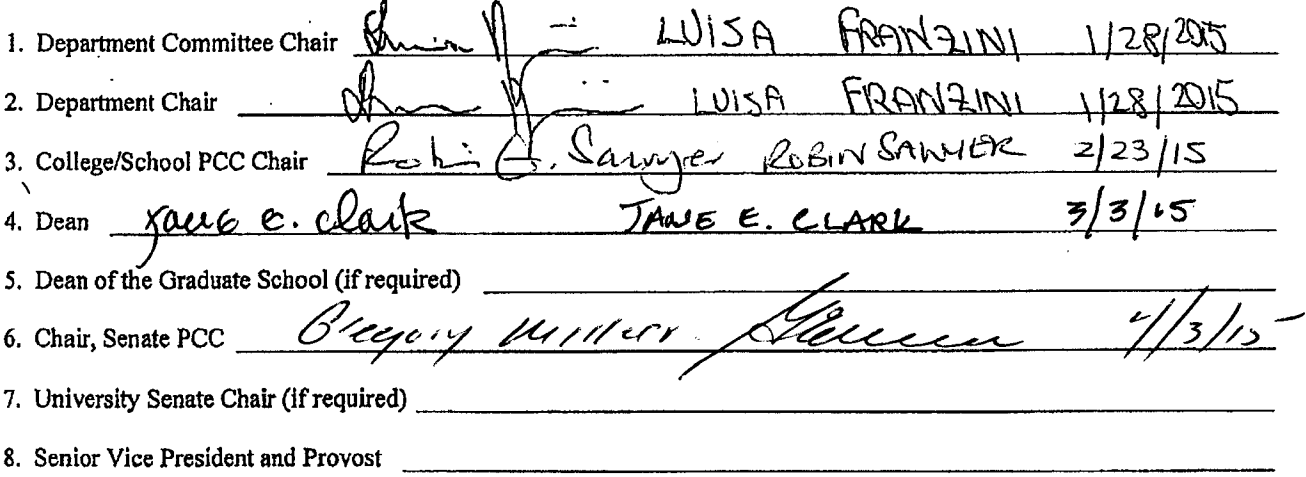 1. Department Committee Chair LUISA FRANZINI 1/28/2015
2. Department Chair LUISA FRANZINI 1/28/2015
3. College/School PCC Chair Robin G. Sawyer ROBIN SAWYER 2/23/15
4. Dean Jane E. Clark JANE E. CLARK 3/3/15
5. Dean of the Graduate School (if required)
6. Chair, Senate PCC Gregory Miller 4/3/15
7. University Senate Chair (if required)
8. Senior Vice President and Provost